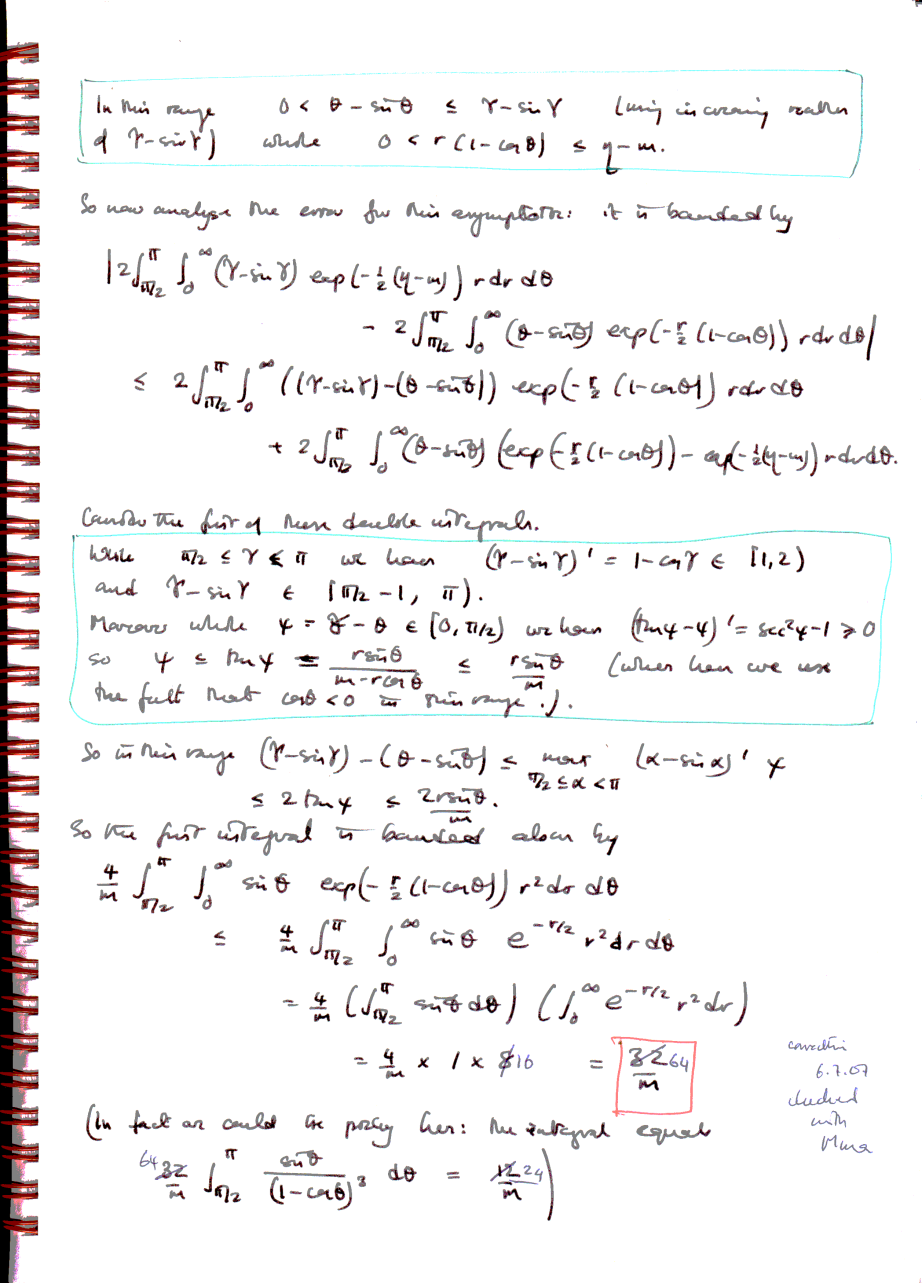 In this range 0 < θ − sin θ ≤ γ − sin γ (using increasing nature
of γ−sin γ) while 0 < r(1−cos θ) ≤ η−m.
So now analyse the error for this asymptotic: it is bounded by
|2∫_{π/2}^{π} ∫_0^∞ (γ−sin γ) exp(−½(η−m)) r dr dθ
− 2∫_{π/2}^{π} ∫_0^∞ (θ−sin θ) exp(−r/2 (1−cos θ)) r dr dθ|
≤ 2∫_{π/2}^{π} ∫_0^∞ ((γ−sin γ)−(θ−sin θ)) exp(−r/2 (1−cos θ)) r dr dθ
+ 2∫_{π/2}^{π} ∫_0^∞ (θ−sin θ) (exp(−r/2 (1−cos θ)) − exp(−½(η−m)) r dr dθ.
Consider the first of these double integrals.
While π/2 ≤ γ ≤ π we have (γ−sin γ)′ = 1−cos γ ∈ [1,2)
and γ−sin γ ∈ [π/2−1, π).
Moreover while ψ = γ−θ ∈ [0, π/2) we have (tan ψ−ψ)′ = sec²ψ−1 ≥ 0
so ψ ≤ tan ψ = r sin θ / (m − r cos θ) ≤ r sin θ / m (where here we use
the fact that cos θ < 0 in this range.).
So in this range (γ−sin γ) − (θ−sin θ) ≤ max_{π/2≤α<π} (α−sin α)′ ψ
≤ 2 tan ψ ≤ 2r sin θ / m.
So the first integral is bounded above by
4/m ∫_{π/2}^{π} ∫_0^∞ sin θ exp(−r/2 (1−cos θ)) r² dr dθ
≤ 4/m ∫_{π/2}^{π} ∫_0^∞ sin θ e^{−r/2} r² dr dθ
= 4/m (∫_{π/2}^{π} sin θ dθ) (∫_0^∞ e^{−r/2} r² dr)
= 4/m × 1 × 8 16 = 32 64 / m
correction
6.7.07
checked
with
(In fact one could be picky here: the integral equals
64 32/m ∫_{π/2}^{π} sin θ / (1−cos θ)³ dθ = 12 24 / m)